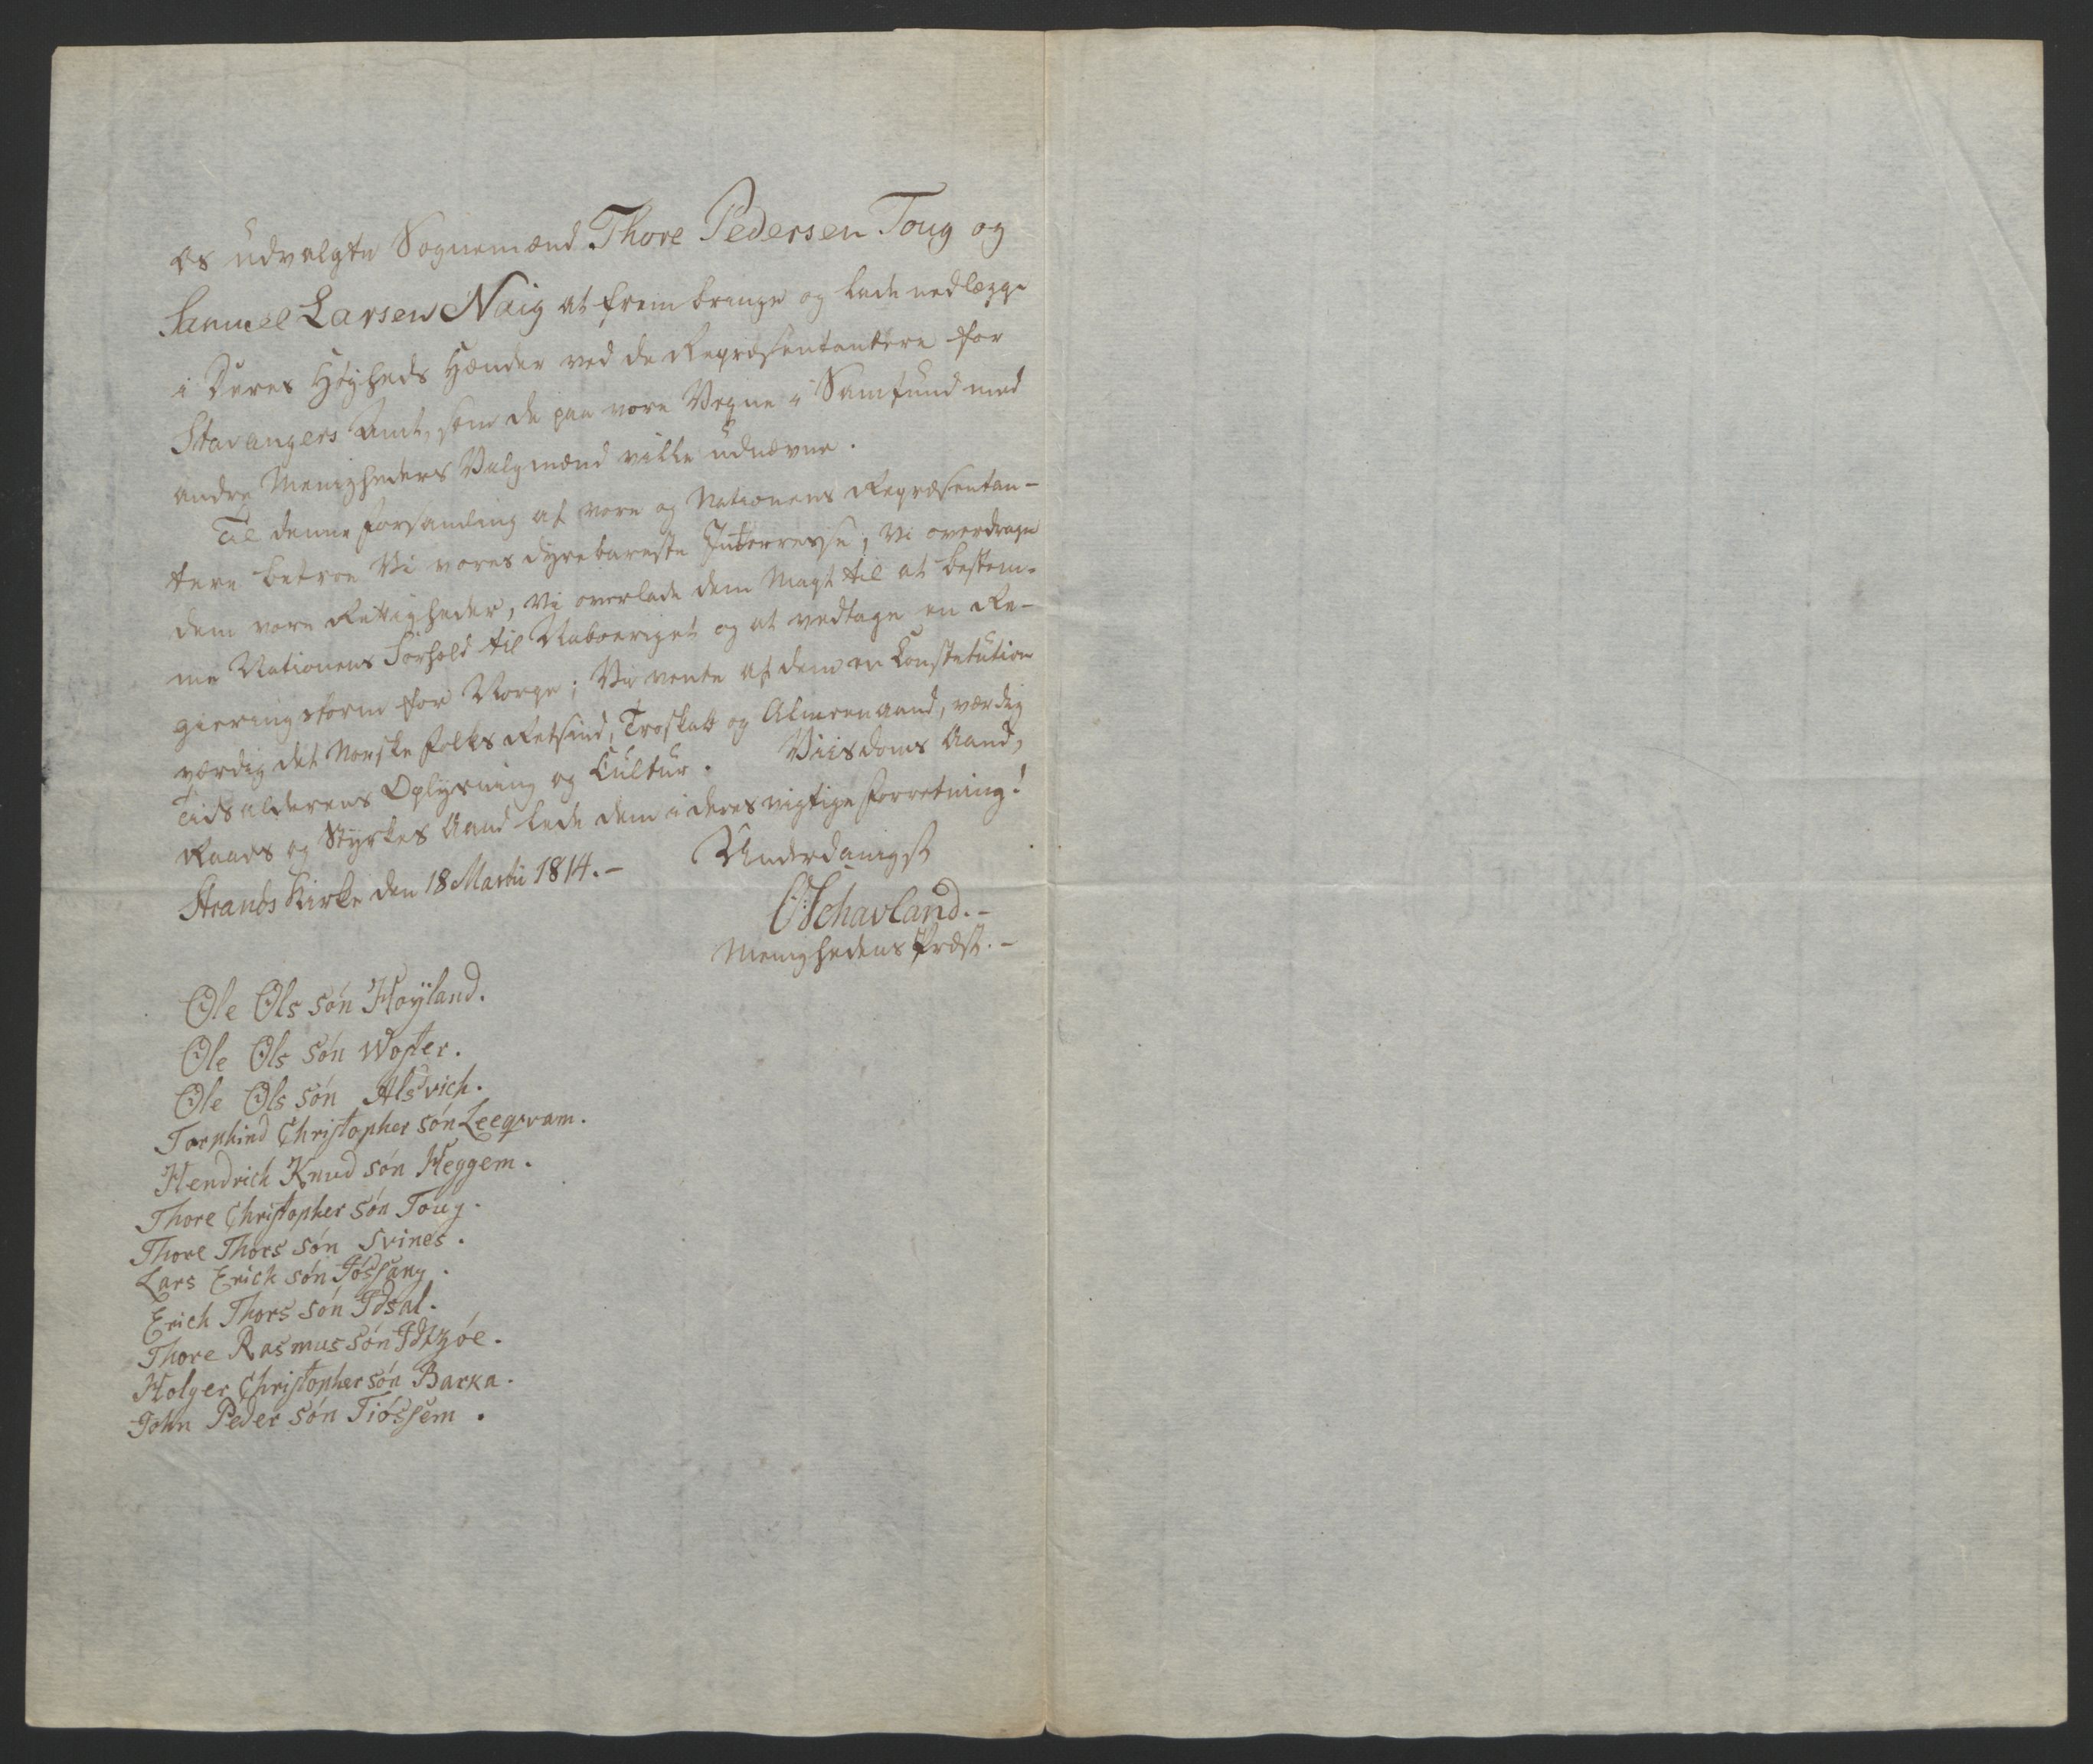 os udvalgte Sognemænd Thore Pedersen Toug og
Samuel Larsen Naig at frembringe og lade nedlægge
i Deres Høyheds Hænder ved de Repræsentantere for
Stavangers Amt, som de paa vore Vegne i Samfund med
andre Menigheders Valgmænd ville udnævne.
Til denne Forsamling af vore og Nationens Repræsentan-
tere betroe Vi vores dyrebareste Interresse; Vi overdrage
dem vore Rettigheder, Vi overlade dem Magt til at bestem-
me Nationens Forhold til Naboeriget og at vedtage en Re-
gieringsform for Norge; Vi vente af dem en Constetution
værdig det Norske Folks Retsind, Troskab og Almeenaand, værdig
Tidsalderens Oplysning og Cultur. Viisdoms Aand,
Raads og Styrkes Aand lede dem i deres vigtige Forretning!
Strands Kirke den 18 Martii 1814.-
Underdanigst
O Schavland.-
Menighedens Præst.-
Ole Ols søn Høyland.
Ole Ols søn Woster.
Ole Ols søn Alsvich.
Torphind Christopher søn Leeqvam.
Hendrich Knud søn Heggem.
Thore Christopher søn Toug.
Thore Thors søn Svines.
Lars Erich søn Jøssang.
Erich Thors søn Idsal.
Thore Rasmus søn Idtzøe.
Holger Christopher søn Barka.
John Peder søn Tiøssem.